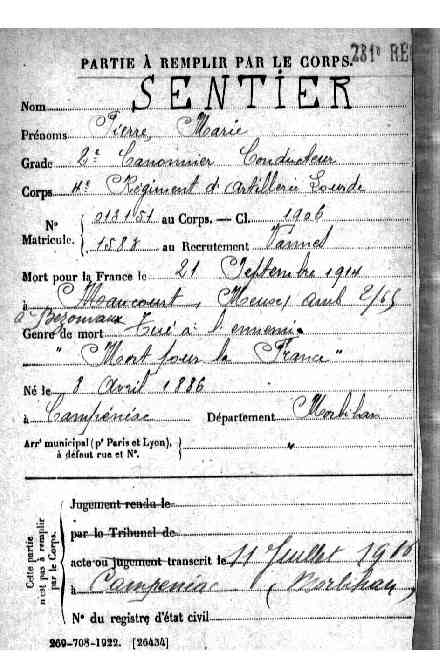 PARTIE À REMPLIR PAR LE CORPS.
281e RÉ
Nom SENTIER
Prénoms Pierre Marie
Grade 2e Canonnier Conducteur
Corps 4e Régiment d'Artillerie Lourde
N° Matricule. { 013151 au Corps. — Cl. 1906
1588 au Recrutement Vannes
Mort pour la France le 21 Septembre 1914
à Maucourt, Meuse, amb 2/65
à Bezonvaux
Genre de mort Tué à l'ennemi
"Mort pour la France"
Né le 8 Avril 1886
à Campénéac Département Morbihan
Arrt municipal (pr Paris et Lyon), à défaut rue et N°. } "
Cette partie n'est pas à remplir par le Corps.
Jugement rendu le
par le Tribunal de
acte ou jugement transcrit le 11 Juillet 1916
à Campénéac (Morbihan)
N° du registre d'état civil
269-708-1922. [26434]